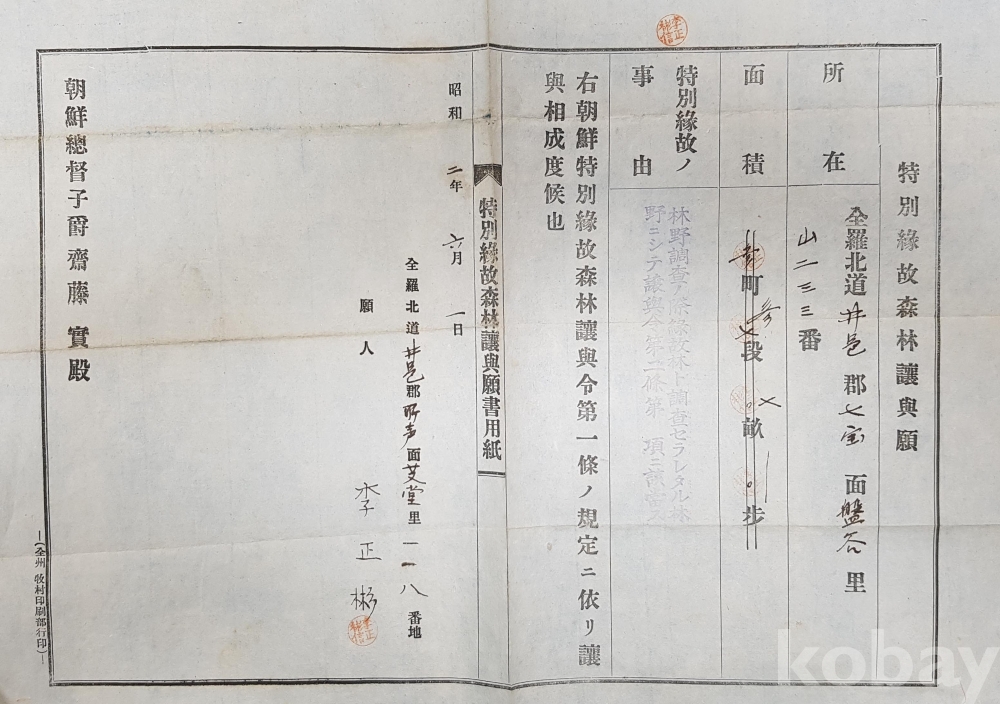 特別緣故森林讓與願
所在
全羅北道井邑郡七宝面盤谷里
山二三三番
面積
町 段 畝 步
特別緣故ノ
事由
林野調査ノ際緣故林ト調査セラレタル林
野ニシテ讓與令第二條第 項ニ該当ス
右朝鮮特別緣故森林讓與令第一條ノ規定ニ依リ讓
與相成度候也
特別緣故森林讓與願書用紙
昭和二年六月一日
全羅北道井邑郡所声面芝堂里一一八番地
願人
李正彬
朝鮮總督子爵齋藤實殿
—(全州 牧村印刷部行印)—
kobay